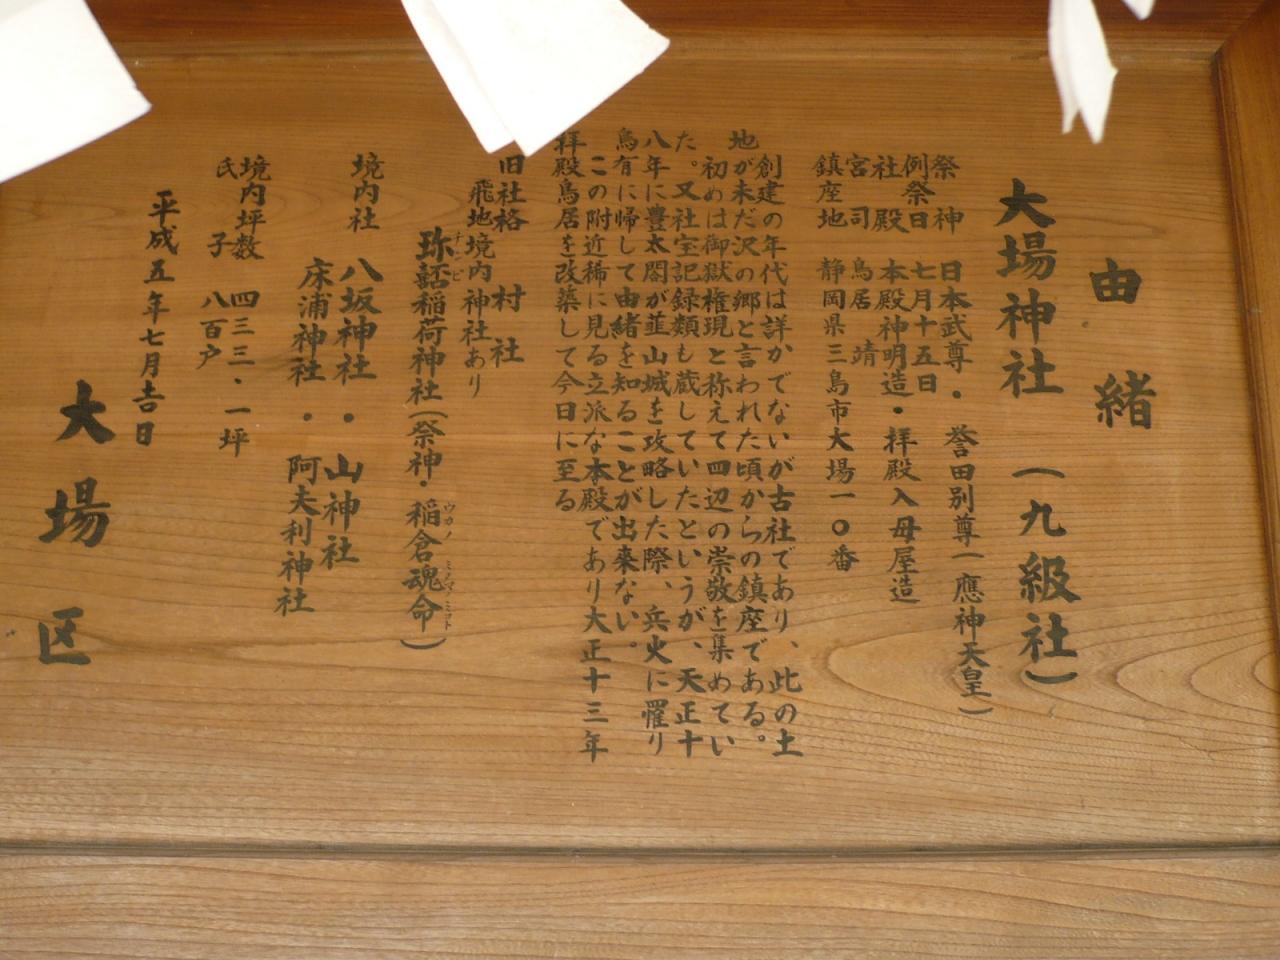 由緒
大場神社(九級社)
祭神 日本武尊・誉田別尊(應神天皇)
例祭日 七月十五日
社殿 本殿神明造・拝殿入母屋造
宮司 鳥居 靖
鎮座地 静岡県三島市大場一〇番
創建の年代は詳かでないが古社であり、此の土
地が未だ沢の郷と言われた頃からの鎮座である。
初めは御獄権現と称えて四辺の崇敬を集めてい
た。又社宝記録類も蔵していたというが、天正十
八年に豊太閤が韮山城を攻略した際、兵火に罹り
烏有に帰して由緒を知ることが出来ない。
この附近稀に見る立派な本殿であり大正十三年
拝殿鳥居を改築して今日に至る。
旧社格 村社
飛地境内神社あり
稲荷神社(祭神・稲倉魂命)
境内社 八坂神社・山神社
床浦神社・阿夫利神社
境内坪数 四三三・一坪
氏子 八百戸
平成五年七月吉日
大場区